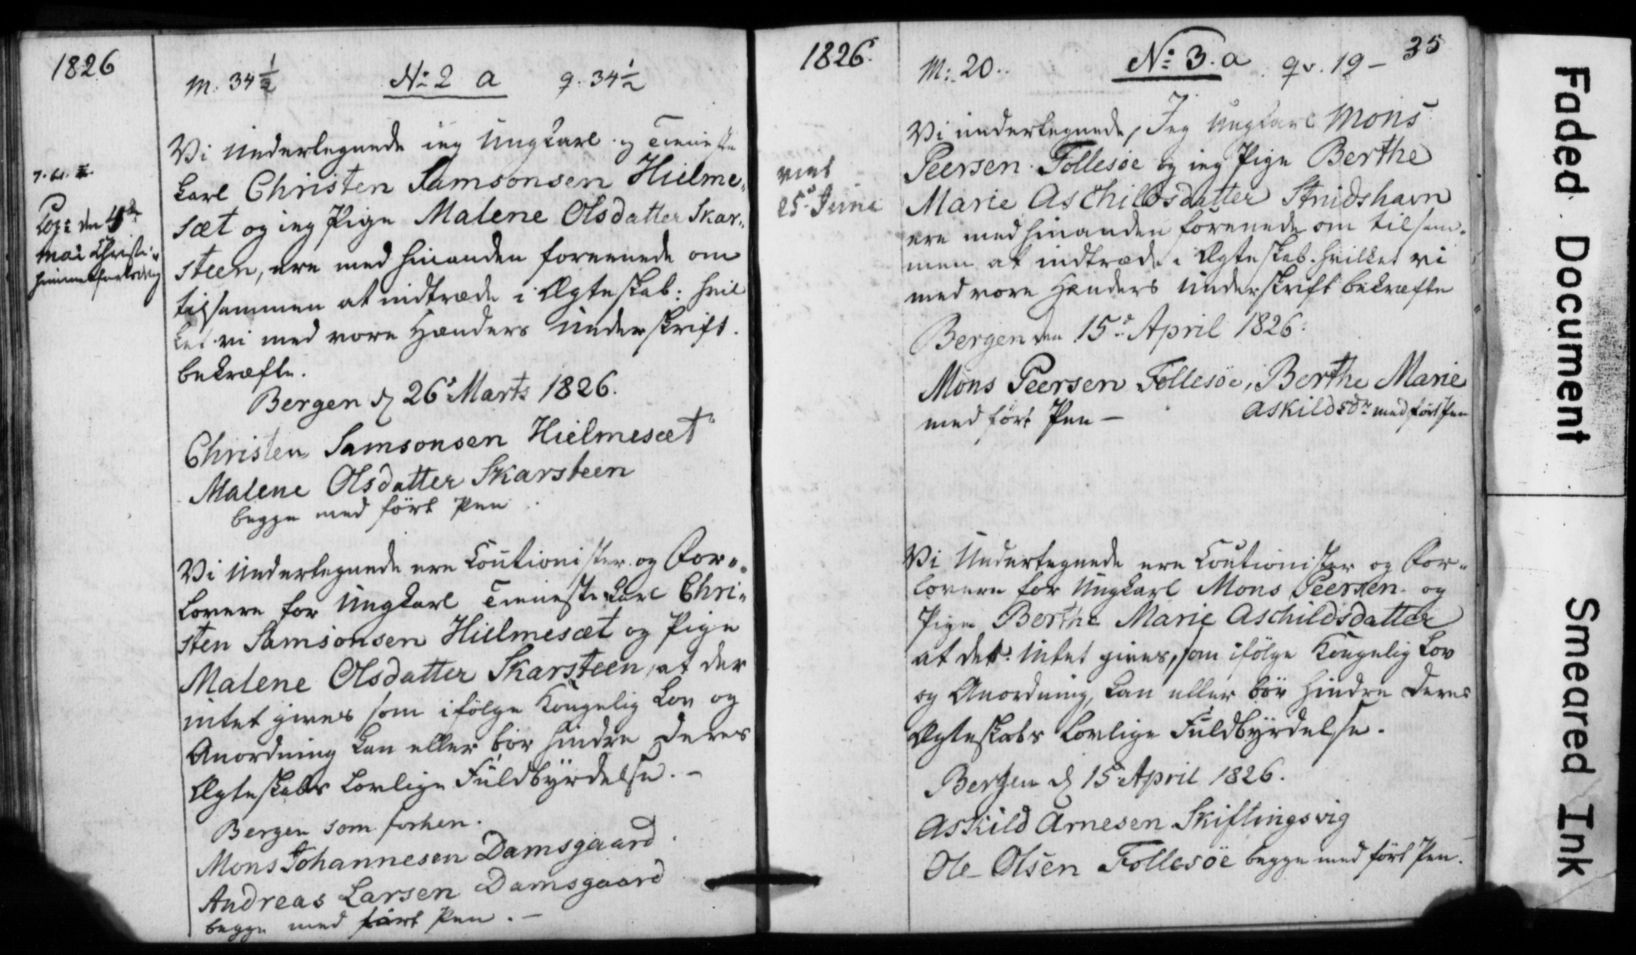 1826
M. 34 1/2 No: 2 a q. 34 1/2
Vi underlegnede ieg Ungkarl og Tieneste
karl Christen Samsonsen Hielme,,
sæt og ieg Pige Malene Olsdatter Skar,,
steen, ere med hinanden foreenede om
tilsammen at indtræde i Ægteskab: hvil
ket vi med vore Hænders Underskrift.
bekræfte.
Bergen d 26 Marts 1826.
Christen Samsonsen Hielmesæt
Malene Olsdatter Skarsteen
begge med ført Pen.
Vi Undertegnede ere Coutionister og For,,
lovere for Ungkarl Tieneste Karl Chri,,
sten Samsonsen Hielmesæt og Pige
Malene Olsdatter Skarsteen, at der
intet gives som ifølge Kongelig Lov og
Anordning kan eller bør hindre Deres
Ægteskabs Lovlige Fuldbyrdelse. -
Bergen som forhen.
Mons Johannesen Damsgaard.
Andreas Larsen Damsgaard
begge med ført Pen. -
den 4de
mai Christi
himmelfartsdag
1826.
M: 20.. No: 3. a qv. 19 - 35
viet
25 Junii
Vi undertegnede, Jeg Ungkarl Mons
Peersen Follesøe og ieg Pige Berthe
Marie Aschildsdatter
ere med hinanden forenede om tilsam,,
men at indtræde i Ægteskab. hvilket vi
med vore Hænders Underskrift bekræfte
Bergen den 15de April 1826:
Mons Peersen Follesøe, Berthe Marie
med ført Pen - Askildsdr med ført Pen
Vi Undertegnede ere Coutionister og For,,
lovere for Ungkarl Mons Peersen og
Pige Berthe Marie Aschildsdatter
at det intet gives, som ifølge Kongelig Lov
og Anordning, kan eller bør hindre Deres
Ægteskabs Lovlige Fuldbyrdelse.
Bergen d 15 April 1826.
Askild Arnesen Skiftingsvig
Ole Olsen Follesöe begge med ført Pen.
Faded Document
Smeared Ink